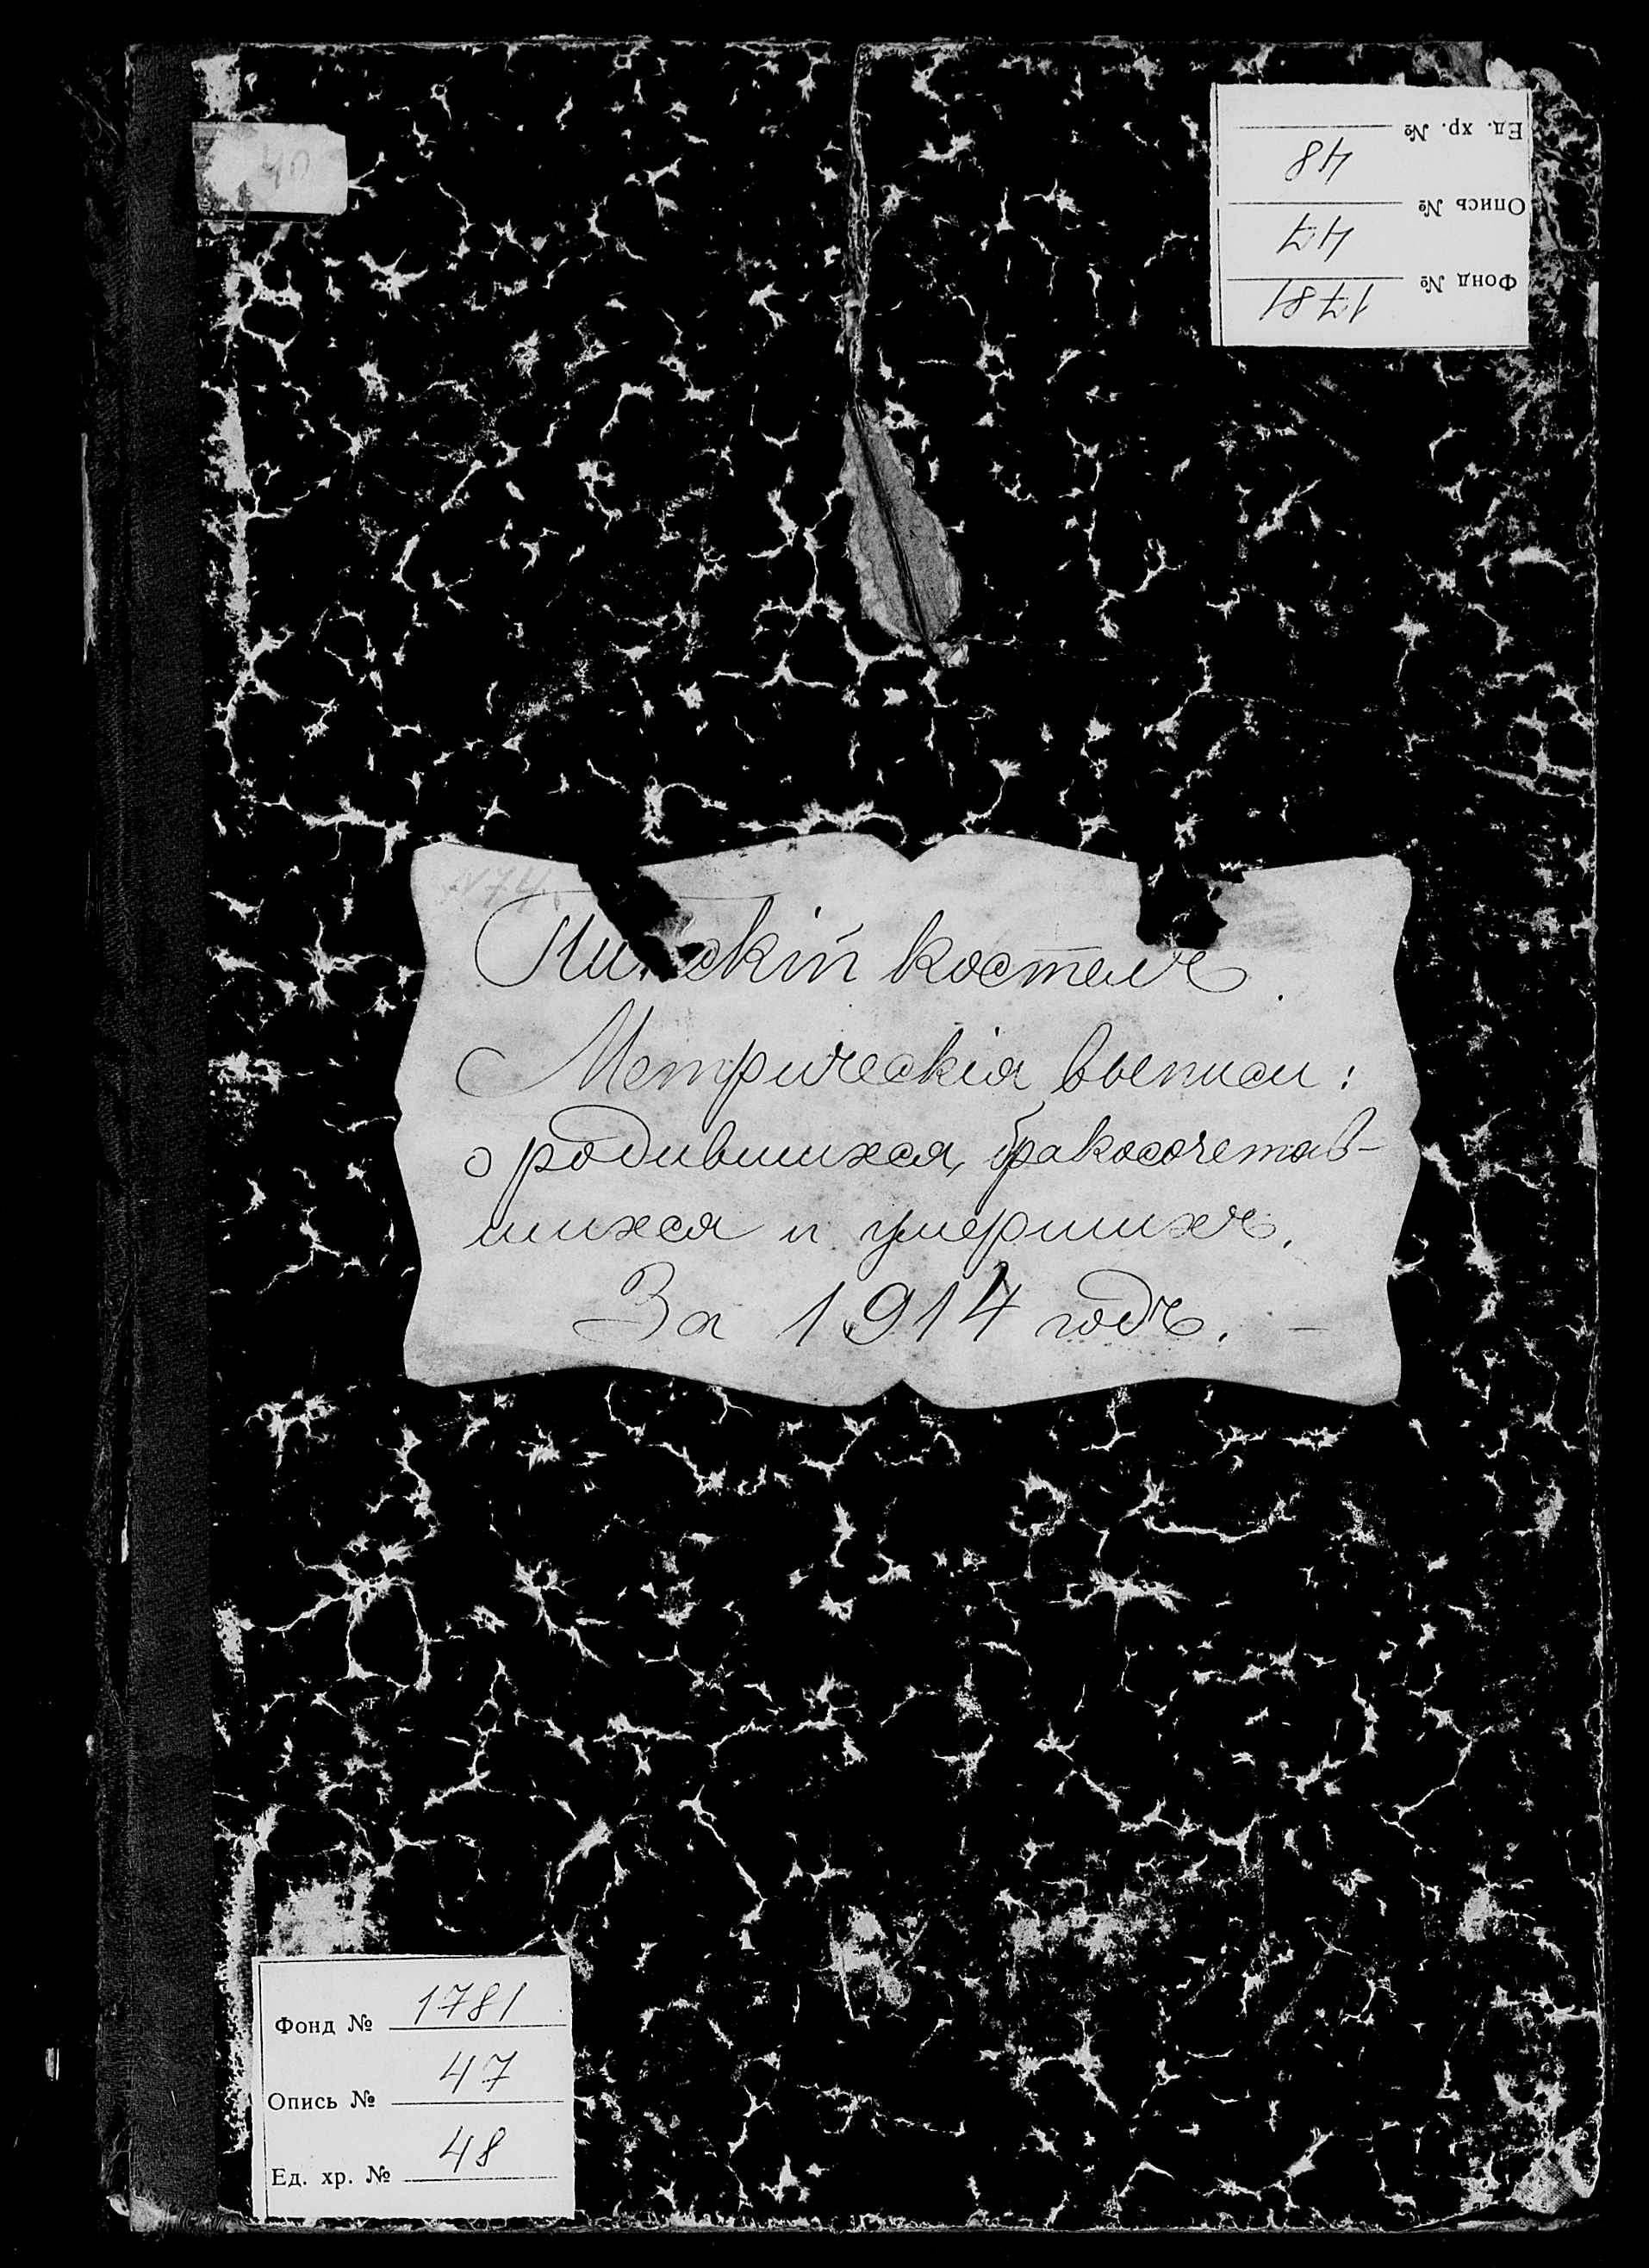 40
Ед. хр. № 48
Опись № 47
Фонд № 1781
N74
костелъ.
Метрическія выписи:
о родившихся, бракосочетав-
шихся и умершихъ.
За 1914 годъ. —
Фонд № 1781
Опись № 47
Ед. хр. № 48